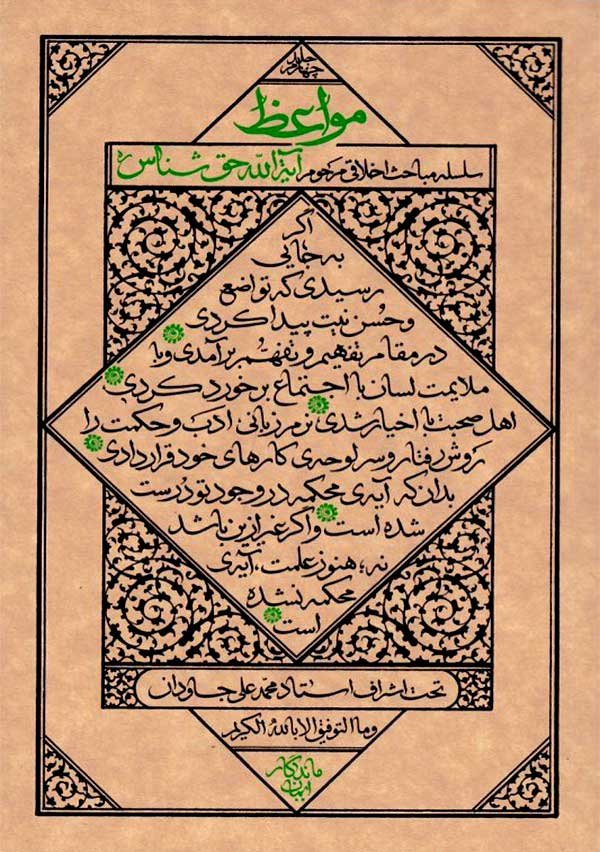 جلد چهاردهم
مواعظ
سلسله مباحث اخلاقی مرحوم آیة الله حق شناس ره
اگر
به جایی
رسیدی که تواضع
و حُسن نیت پیدا کردی
در مقام تفهیم و تفهّم بر آمدی و با
ملایمت لسان با اجتماع برخورد کردی
اهل صحبت با اخیار شدی نرم زبانی ادب و حکمت را
روش رفتار و سر لوحه‌ی کارهای خود قرار دادی
بدان که آیه‌ی محکمه در وجود تو درست
شده است و اگر غیر از ین باشد
نه؛ هنوز علمت، آیه‌ی
محکمه نشده
است
تحت اشراف استاد محمد علی جاودان
و ما التوفیق الا بالله الکریم
ماندگار
ایمان